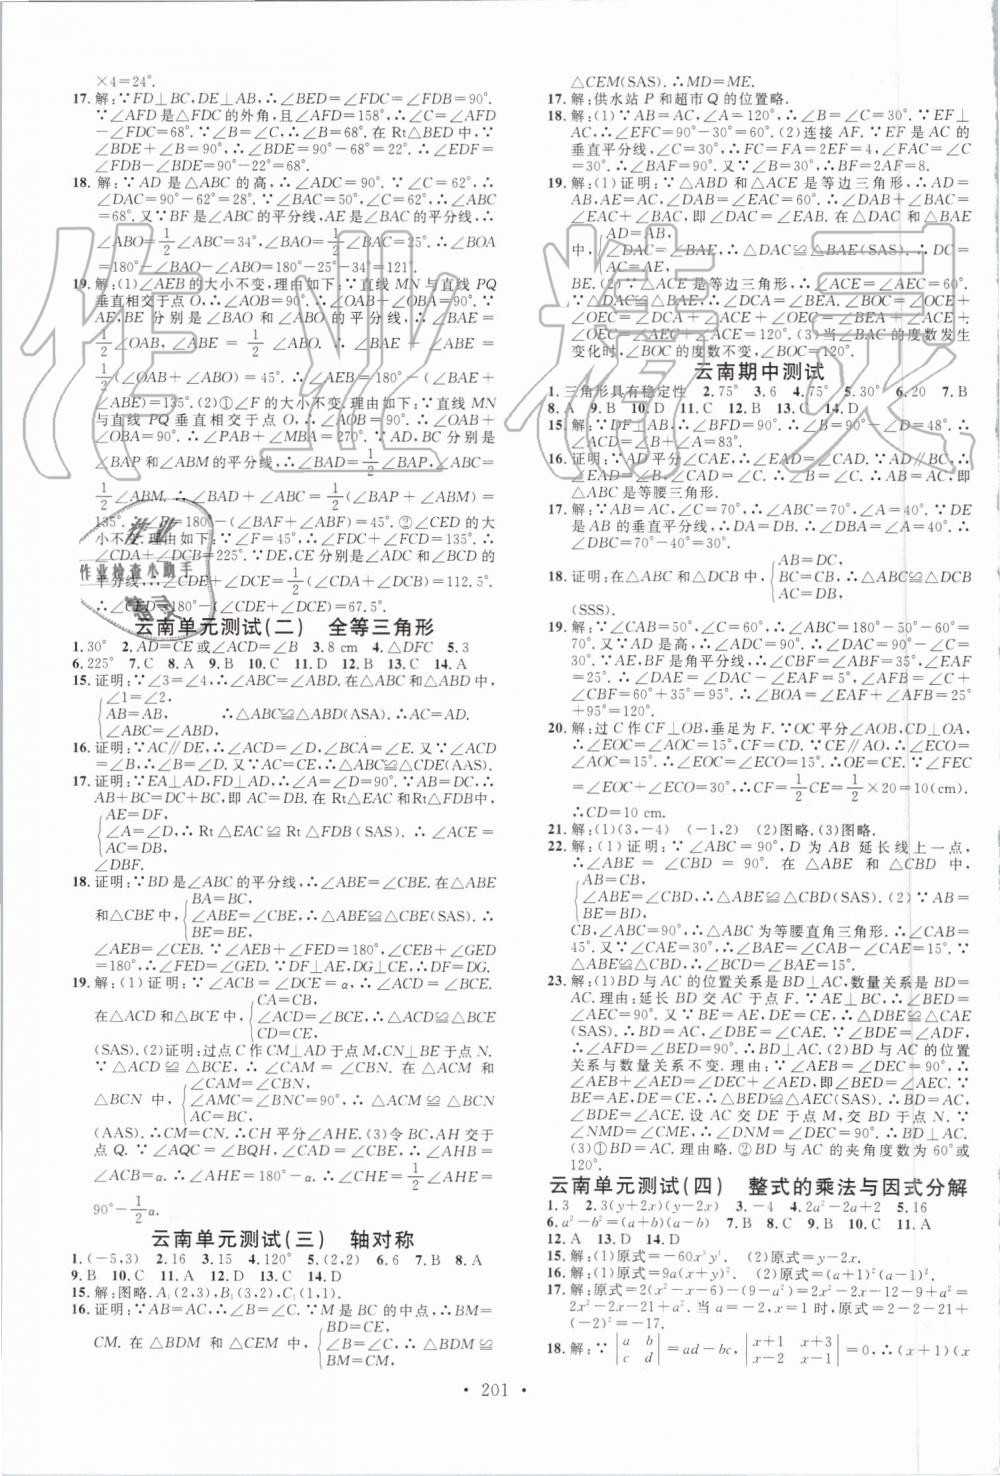 ×4=24°.
17.解:∵FD⊥BC,DE⊥AB,∴∠BED=∠FDC=∠FDB=90°.
∵∠AFD是△FDC的外角,且∠AFD=158°,∴∠C=∠AFD-
∠FDC=68°.∵∠B=∠C,∴∠B=68°.在Rt△BED中,∵
∠BDE+∠B=90°,∴∠BDE=90°-68°=22°.∴∠EDF=
∠FDB-∠BDE=90°-22°=68°.
18.解:∵AD是△ABC的高,∴∠ADC=90°.∵∠C=62°,∴
∠DAC=90°-62°=28°.∵∠BAC=50°,∠C=62°,∴∠ABC
=68°.又∵BF是∠ABC的平分线,AE是∠BAC的平分线,∴
∠ABO=1/2∠ABC=34°,∠BAO=1/2∠BAC=25°.∴∠BOA
=180°-∠BAO-∠ABO=180°-25°-34°=121°.
19.解:(1)∠AEB的大小不变,理由如下:∵直线MN与直线PQ
垂直相交于点O,∴∠AOB=90°.∴∠OAB+∠OBA=90°.∵
AE,BE分别是∠BAO和∠ABO的平分线,∴∠BAE=
1/2∠OAB,∠ABE=1/2∠ABO.∴∠BAE+∠ABE=
1/2(∠OAB+∠ABO)=45°.∴∠AEB=180°-(∠BAE+
∠ABE)=135°.(2)①∠F的大小不变.理由如下:∵直线MN
与直线PQ垂直相交于点O,∴∠AOB=90°.∴∠OAB+
∠OBA=90°.∴∠PAB+∠MBA=270°.∵AD,BC分别是
∠BAP和∠ABM的平分线,∴∠BAD=1/2∠BAP,∠ABC=
1/2∠ABM.∴∠BAD+∠ABC=1/2(∠BAP+∠ABM)=
135°.∴∠F=180°-(∠BAF+∠ABF)=45°.②∠CED的大
小不变.理由如下:∵∠F=45°,∴∠FDC+∠FCD=135°.∴
∠CDA+∠DCB=225°.∵DE,CE分别是∠ADC和∠BCD的
平分线,∴∠CDE+∠DCE=1/2(∠CDA+∠BCD)=112.5°.
∴∠CED=180°-(∠CDE+∠DCE)=67.5°.
云南单元测试(二) 全等三角形
1.30° 2.AD=CE或∠ACD=∠B 3.8 cm 4.△DFC 5.3
6.225° 7.C 8.A 9.B 10.C 11.D 12.B 13.C 14.A
15.证明:∵∠3=∠4,∴∠ABC=∠ABD.在△ABC和△ABD中,
{∠1=∠2,
AB=AB, ∴△ABC≌△ABD(ASA).∴AC=AD.
∠ABC=∠ABD,
16.证明:∵AC∥DE,∴∠ACD=∠D,∠BCA=∠E.又∵∠ACD
=∠B,∴∠B=∠D.又∵AC=CE,∴△ABC≌△CDE(AAS).
17.证明:∵EA⊥AD,FD⊥AD,∴∠A=∠D=90°.∵AB=DC,∴
AB+BC=DC+BC,即AC=DB.在Rt△EAC和Rt△FDB中,
{AE=DF,
∠A=∠D,∴Rt△EAC≌Rt△FDB(SAS).∴∠ACE=
AC=DB,
∠DBF.
18.证明:∵BD是∠ABC的平分线,∴∠ABE=∠CBE.在△ABE
{BA=BC,
和△CBE中,∠ABE=∠CBE,∴△ABE≌△CBE(SAS).∴
BE=BE,
∠AEB=∠CEB.∵∠AEB+∠FED=180°,∠CEB+∠GED
=180°,∴∠FED=∠GED.∵DF⊥AE,DG⊥CE,∴DF=DG.
19.解:(1)证明:∵∠ACB=∠DCE=α,∴∠ACD=∠BCE.
{CA=CB,
在△ACD和△BCE中,∠ACD=∠BCE,∴△ACD≌△BCE
CD=CE,
(SAS).(2)证明:过点C作CM⊥AD于点M,CN⊥BE于点N.
∵△ACD≌△BCE,∴∠CAM=∠CBN.在△ACM和
{∠CAM=∠CBN,
△BCN中,∠AMC=∠BNC=90°,∴△ACM≌△BCN
AC=BC,
(AAS).∴CM=CN.∴CH平分∠AHE.(3)令BC,AH交于
点Q.∵∠AQC=∠BQH,∠CAD=∠CBE,∴∠AHB=
∠ACB=α.∴∠AHE=180°-α.∴∠CHE=1/2∠AHE=
90°-1/2α.
云南单元测试(三) 轴对称
1.(-5,3) 2.16 3.15 4.120° 5.(2,2) 6.6 7.B 8.A
9.B 10.C 11.A 12.D 13.C 14.D
15.解:图略.A₁(2,3),B₁(3,2),C₁(1,1).
16.证明:∵AB=AC,∴∠B=∠C.∵M是BC的中点,∴BM=
{BD=CE,
CM.在△BDM和△CEM中,∠B=∠C,∴△BDM≌
BM=CM,
△CEM(SAS).∴MD=ME.
17.解:供水站P和超市Q的位置略.
18.解:(1)∵AB=AC,∠A=120°,∴∠B=∠C=30°.∵EF⊥
AC,∴∠EFC=90°-30°=60°.(2)连接AF.∵EF是AC的
垂直平分线,∠C=30°,∴FA=FC=2EF=4,∠FAC=∠C
=30°.∴∠BAF=90°.又∠B=30°,∴BF=2AF=8.
19.解:(1)证明:∵△ABD和△ACE是等边三角形,∴AD=
AB,AE=AC,∠DAB=∠EAC=60°.∴∠DAB+∠BAC=
∠EAC+∠BAC,即∠DAC=∠EAB.在△DAC和△BAE
{AD=AB,
中,∠DAC=∠BAE,∴△DAC≌△BAE(SAS).∴DC=
AC=AE,
BE.(2)∵△ACE是等边三角形,∴∠ACE=∠AEC=60°.
∵△DAC≌△BAE,∴∠DCA=∠BEA.∴∠BOC=∠OCE+
∠OEC=∠DCA+∠ACE+∠OEC=∠BEA+∠ACE+
∠OEC=∠ACE+∠AEC=120°.(3)当∠BAC的度数发生
变化时,∠BOC的度数不变,∠BOC=120°.
云南期中测试
1.三角形具有稳定性 2.75° 3.6 4.75° 5.30° 6.20 7.B
8.A 9.B 10.D 11.C 12.B 13.C 14.D
15.解:∵DF⊥AB,∴∠BFD=90°.∴∠B=90°-∠D=48°.∴
∠ACD=∠B+∠A=83°.
16.证明:∵AD平分∠CAE,∴∠EAD=∠CAD.∵AD∥BC,∴
∠EAD=∠B,∠CAD=∠C.∴∠B=∠C.∴AB=AC.故
△ABC是等腰三角形.
17.解:∵AB=AC,∴∠ABC=∠C=70°,∠A=40°.∵DE
是AB的垂直平分线,∴DA=DB.∴∠DBA=∠A=40°.∴
∠BDC=80°.
{AB=DC,
18.证明:在△ABC和△DCB中,AC=DB,∴△ABC≌△DCB
BC=CB,
(SSS).
19.解:∵∠CAB=50°,∠C=60°,∴∠ABC=180°-50°-60°=
70°.又∵AD是高,∴∠ADC=90°.∴∠DAC=90°-∠C=
30°.∵AE,BF是角平分线,∴∠CBF=∠ABF=35°,∠EAF
=25°.∴∠DAE=∠DAC-∠EAF=5°.∵∠AFB=∠C+
∠CBF=60°+35°=95°,∴∠BOA=∠EAF+∠AFB=25°
+95°=120°.
20.解:过C作CF⊥OB,垂足为F.∵OC平分∠AOB,CD⊥OA,
∴∠EOC=∠AOC=15°,CF=CD.∵CE∥AO,∴∠ECO=
∠AOC=15°.∴∠EOC=∠ECO=15°.∴OE=CE.∵∠FEC
=∠EOC+∠ECO=30°,∴CF=1/2CE=1/2×20=10(cm).
∴CD=10 cm.
21.解:(1)(3,-4) (-1,2) (2)图略.(3)图略.
22.解:(1)证明:∵∠ABC=90°,D为AB延长线上一点,
∴∠ABE=∠CBD=90°.在△ABE和△CBD中,
{AB=CB,
∠ABE=∠CBD,∴△ABE≌△CBD(SAS).(2)∵AB=
BE=BD,
CB,∠ABC=90°,∴△ABC为等腰直角三角形.∴∠CAB=
45°.又∵∠CAE=30°,∴∠BAE=∠CAB-∠CAE=15°.∵
△ABE≌△CBD,∴∠BCD=∠BAE=15°.
23.解:(1)BD与AC的位置关系是BD⊥AC,数量关系是BD=
AC.理由:延长BD交AC于点F.∵AE⊥BC,∴∠BED=
∠AEC=90°.又∵BE=AE,DE=CE,∴△DBE≌△CAE
(SAS).∴BD=AC,∠DBE=∠CAE.∵∠BDE=∠ADF,
∴∠AFD=∠BED=90°.∴BD⊥AC.(2)BD与AC的位置
关系与数量关系不变.理由:∵∠BEA=∠DEC=90°,∴
∠AEB+∠AED=∠DEC+∠AED,即∠BED=∠AEC.∵
BE=AE,DE=CE,∴△BED≌△AEC(SAS).∴BD=AC,
∠BDE=∠ACE.设AC交DE于点M,交BD于点N.∵
∠NMD=∠CME,∴∠DNM=∠DEC=90°.∴BD⊥AC.
(3)①BD=AC.理由略.②BD与AC的夹角度数为60°或
120°.
云南单元测试(四) 整式的乘法与因式分解
1.3 2.3(y+2x)(y-2x) 3.-4 4.2a²-2a+2 5.16
6.a²-b²=(a+b)(a-b) 7.B 8.B 9.C 10.C 11.A
12.A 13.D 14.D
15.解:(1)原式=-60x³y³.(2)原式=y-2x.
16.解:(1)原式=9a(x+y)².(2)原式=(a+1)²(a-1)².
17.解:原式=2(x²-x-6)-(9-a²)=2x²-2x-12-9+a²=
2x²-2x-21+a².当a=-2,x=1时,原式=2-2-21+
(-2)²=-17.
18.解:∵|a b / c d|=ad-bc,|x+1 x+3 / x-2 x-1|=0,∴(x+1)(x
• 201 •
作业精灵
作业
作业检查小助手
精灵